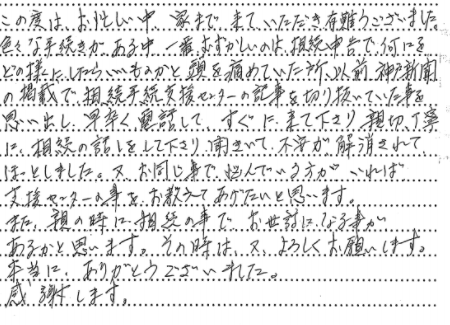 この度は、お忙しい中、家まで、来ていただき有難うございました
色々な手続きが、ある中、一番、むずかしいのは、相続申告で、何を
どの様に、したらいいものかと頭を痛めていた所、以前、神戸新聞
の掲載で、相続手続支援センターの記事を切り抜いていた事を
思い出し、早々電話して、すぐに来て下さり、親切、丁寧
に、相続の話しをして下さり、聞きいて、不安が解消されて
ほっとしました。又、お同じ事で、悩んでいる方がいれば
支援センターの事を、お教えてあげたいと思います。
また、親の時に、相続の事で、お世話になる事が
あるかと思います。その時は、又、よろしくお願いします。
本当に、ありがとうございました。
感謝します。